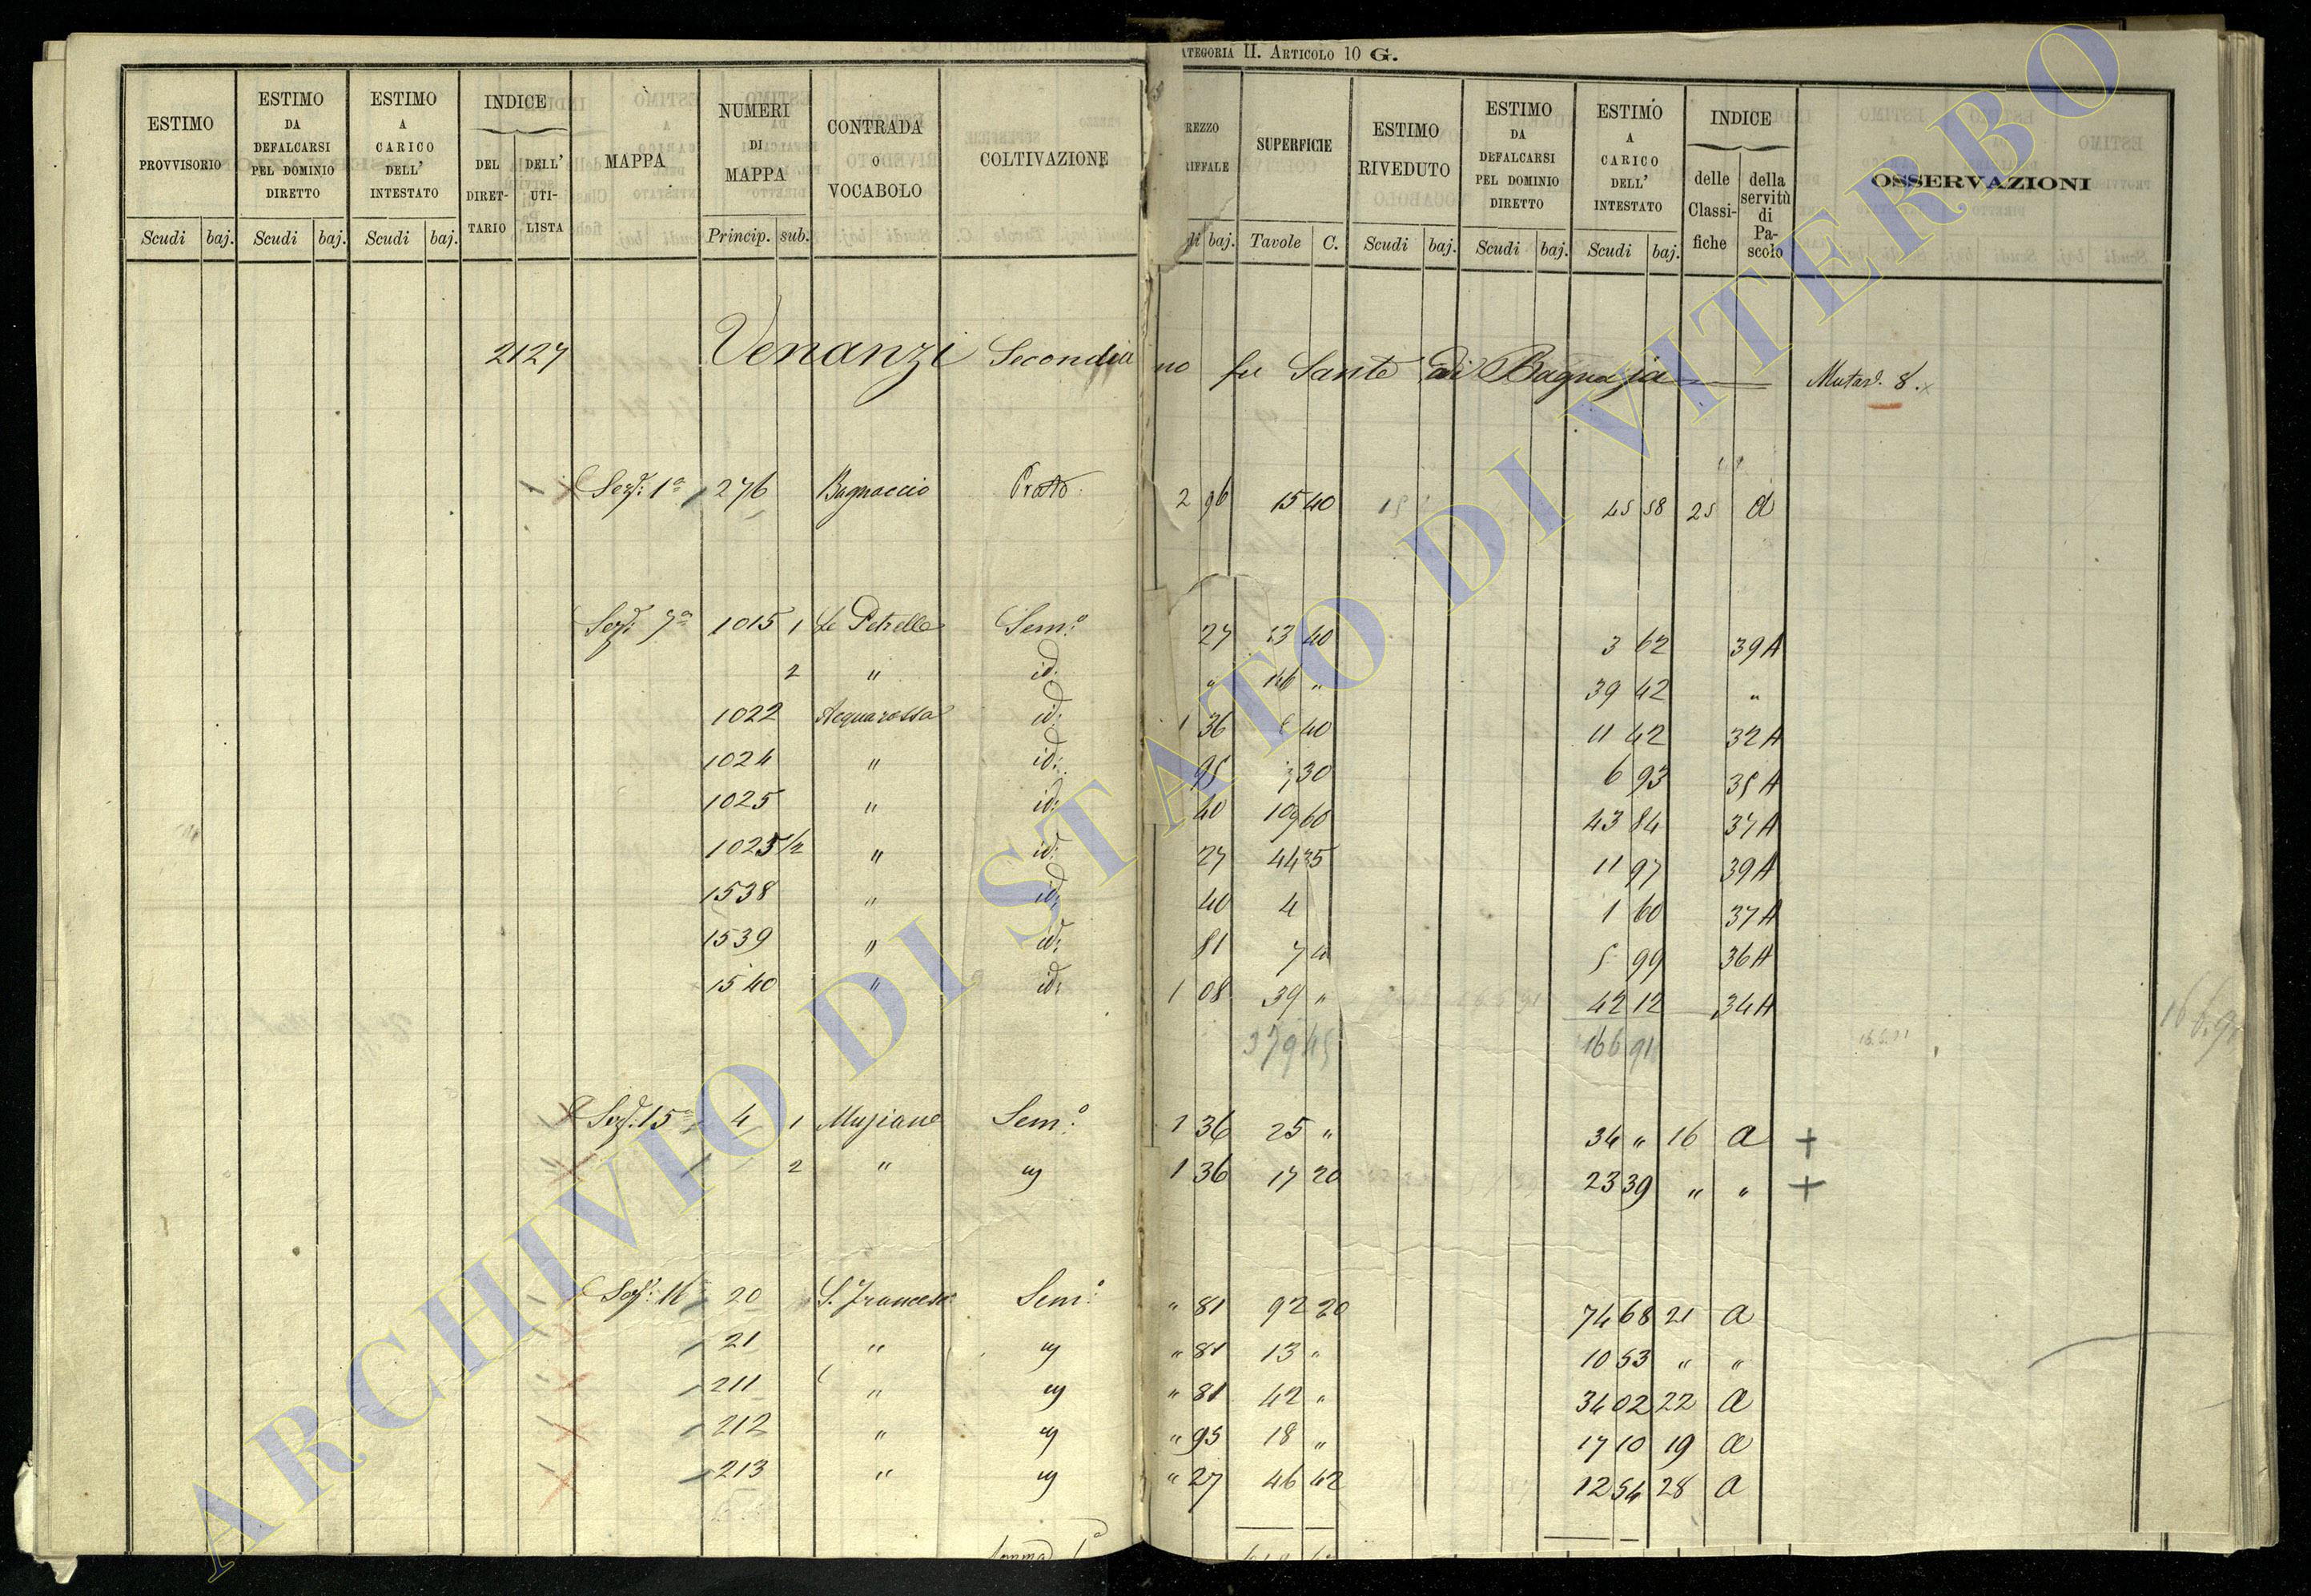 CATEGORIA II. ARTICOLO 10 G.
ESTIMO PROVVISORIO Scudi baj.
ESTIMO DA DEFALCARSI PEL DOMINIO DIRETTO Scudi baj.
ESTIMO A CARICO DELL' INTESTATO Scudi baj.
INDICE DEL DIRET-TARIO DELL' UTI-LISTA
MAPPA
NUMERI DI MAPPA Princip. sub.
CONTRADA O VOCABOLO
COLTIVAZIONE
REZZO RIFFALE di baj.
SUPERFICIE Tavole C.
ESTIMO RIVEDUTO Scudi baj.
ESTIMO DA DEFALCARSI PEL DOMINIO DIRETTO Scudi baj.
ESTIMO A CARICO DELL' INTESTATO Scudi baj.
INDICE delle Classi-fiche della servitù di Pa-scolo
OSSERVAZIONI
2127 Venanzi Secondiano fu Sante di Bagnaja Mutaz. 8.
Sez. 1a 276 Bagnaccio Prato 2 96 15 40 45 58 25 d
Sez. 7a 1015 1 Le Petrelle Sem.o 27 13 40 3 62 39 A
2 " id: " 146 " 39 42 "
1022 Acquarossa id: 1 36 8 40 11 42 32 A
1024 " id: 95 7 30 6 93 35 A
1025 " id: 40 109 60 43 84 37 A
1025 1/2 " id: 27 44 35 11 97 39 A
1538 " id: 40 4 1 60 37 A
1539 " id: 81 7 40 5 99 36 A
1540 " id: 1 08 39 " 42 12 34 A
379 45 166 91 16.6.91
166.91
Sez. 15a 4 1 Mujano Sem.o 1 36 25 " 34 " 16 a +
2 " " 1 36 17 20 23 39 " " +
Sez. 16 20 S. Francesco Sem.o " 81 92 20 74 68 21 a
21 " " " 81 13 " 10 53 " "
211 " " " 81 42 " 34 02 22 a
212 " " " 95 18 " 17 10 19 a
213 " " " 27 46 42 12 54 28 a
Somma
ARCHIVIO DI STATO DI VITERBO